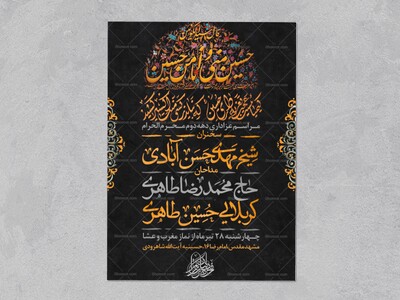 حسین منی و انا من حسین
مراسم عزاداری دهه دوم محرم الحرام
سخنران
شیخ مهدی حسن آبادی
مداحان
حاج محمدرضا طاهری
کربلایی حسین طاهری
چهارشنبه ۲۸ تیرماه از نماز مغرب و عشا
مشهد مقدس، امام رضا ۱۶، حسینیه آیت‌الله شاهرودی